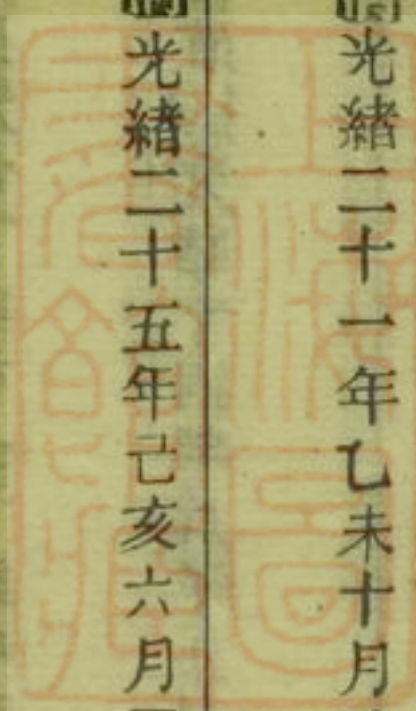 光緒二十一年乙未十月
光緒二十五年己亥六月